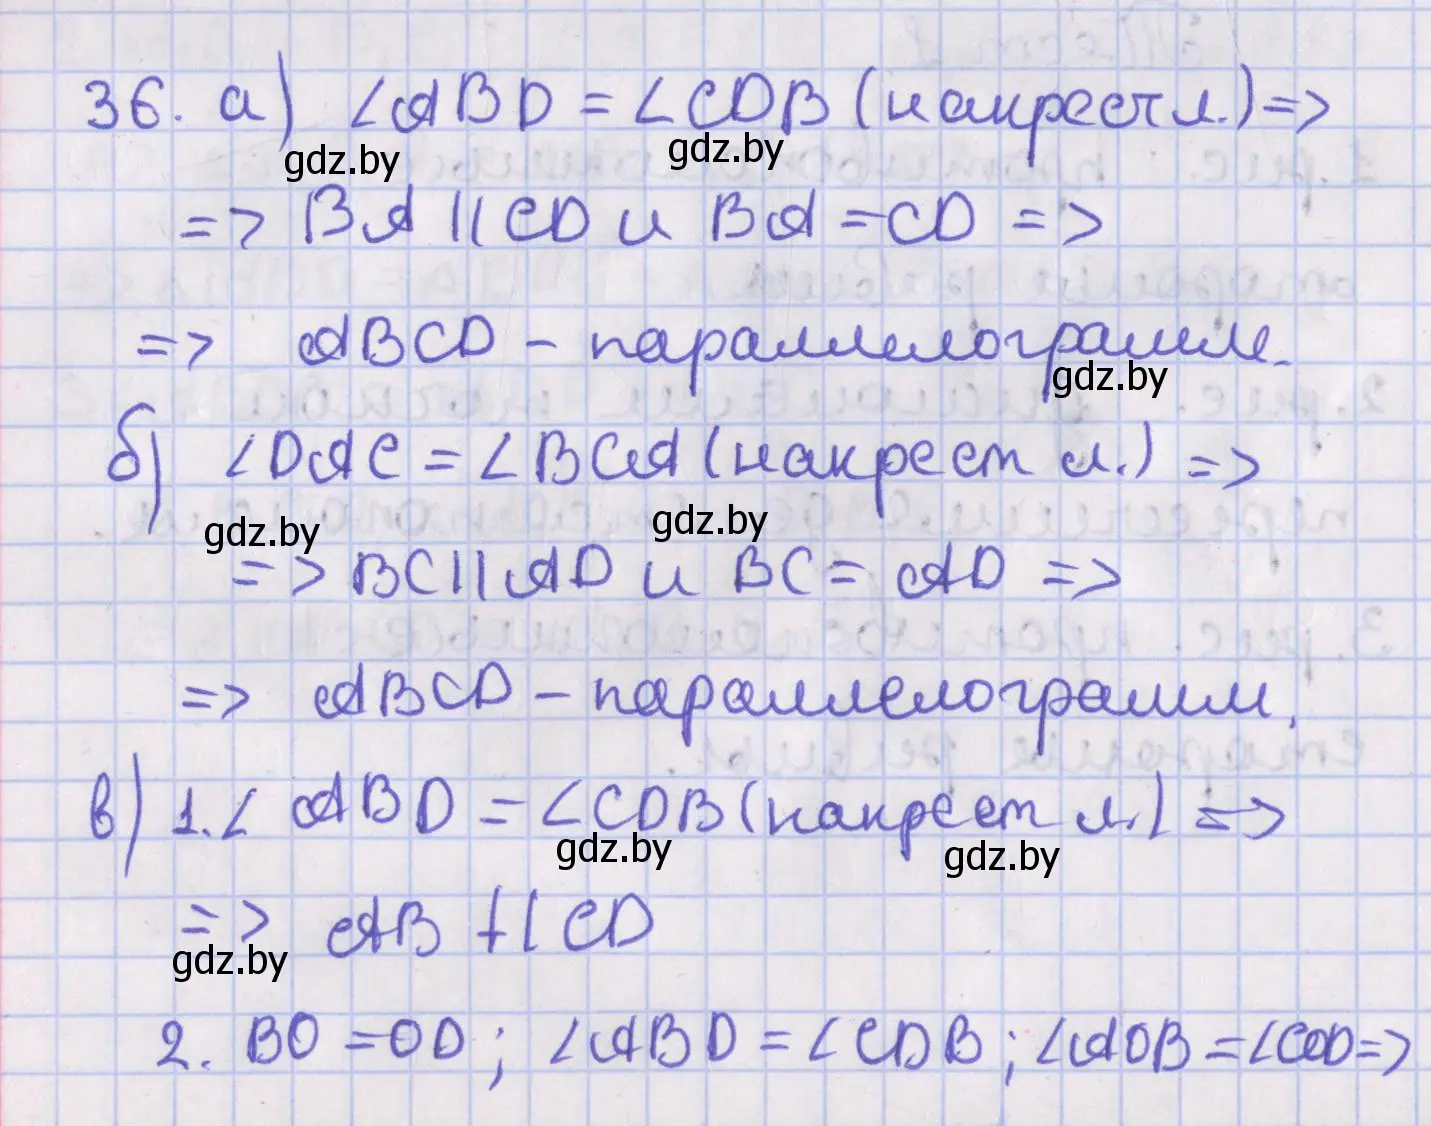 36. а) ∠ABD = ∠CDB (накрест л.) =>
gdz.by gdz.by
=> BA || CD и BA = CD =>
=> ABCD – параллелограмм.
gdz.by
б) ∠DAC = ∠BCA (накрест л.) =>
gdz.by gdz.by
=> BC || AD и BC = AD =>
=> ABCD – параллелограмм.
в) 1. ∠ABD = ∠CDB (накрест л.) =>
gdz.by gdz.by
=> AB || CD
gdz.by
2. BO = OD; ∠ABD = ∠CDB; ∠AOB = ∠COD =>